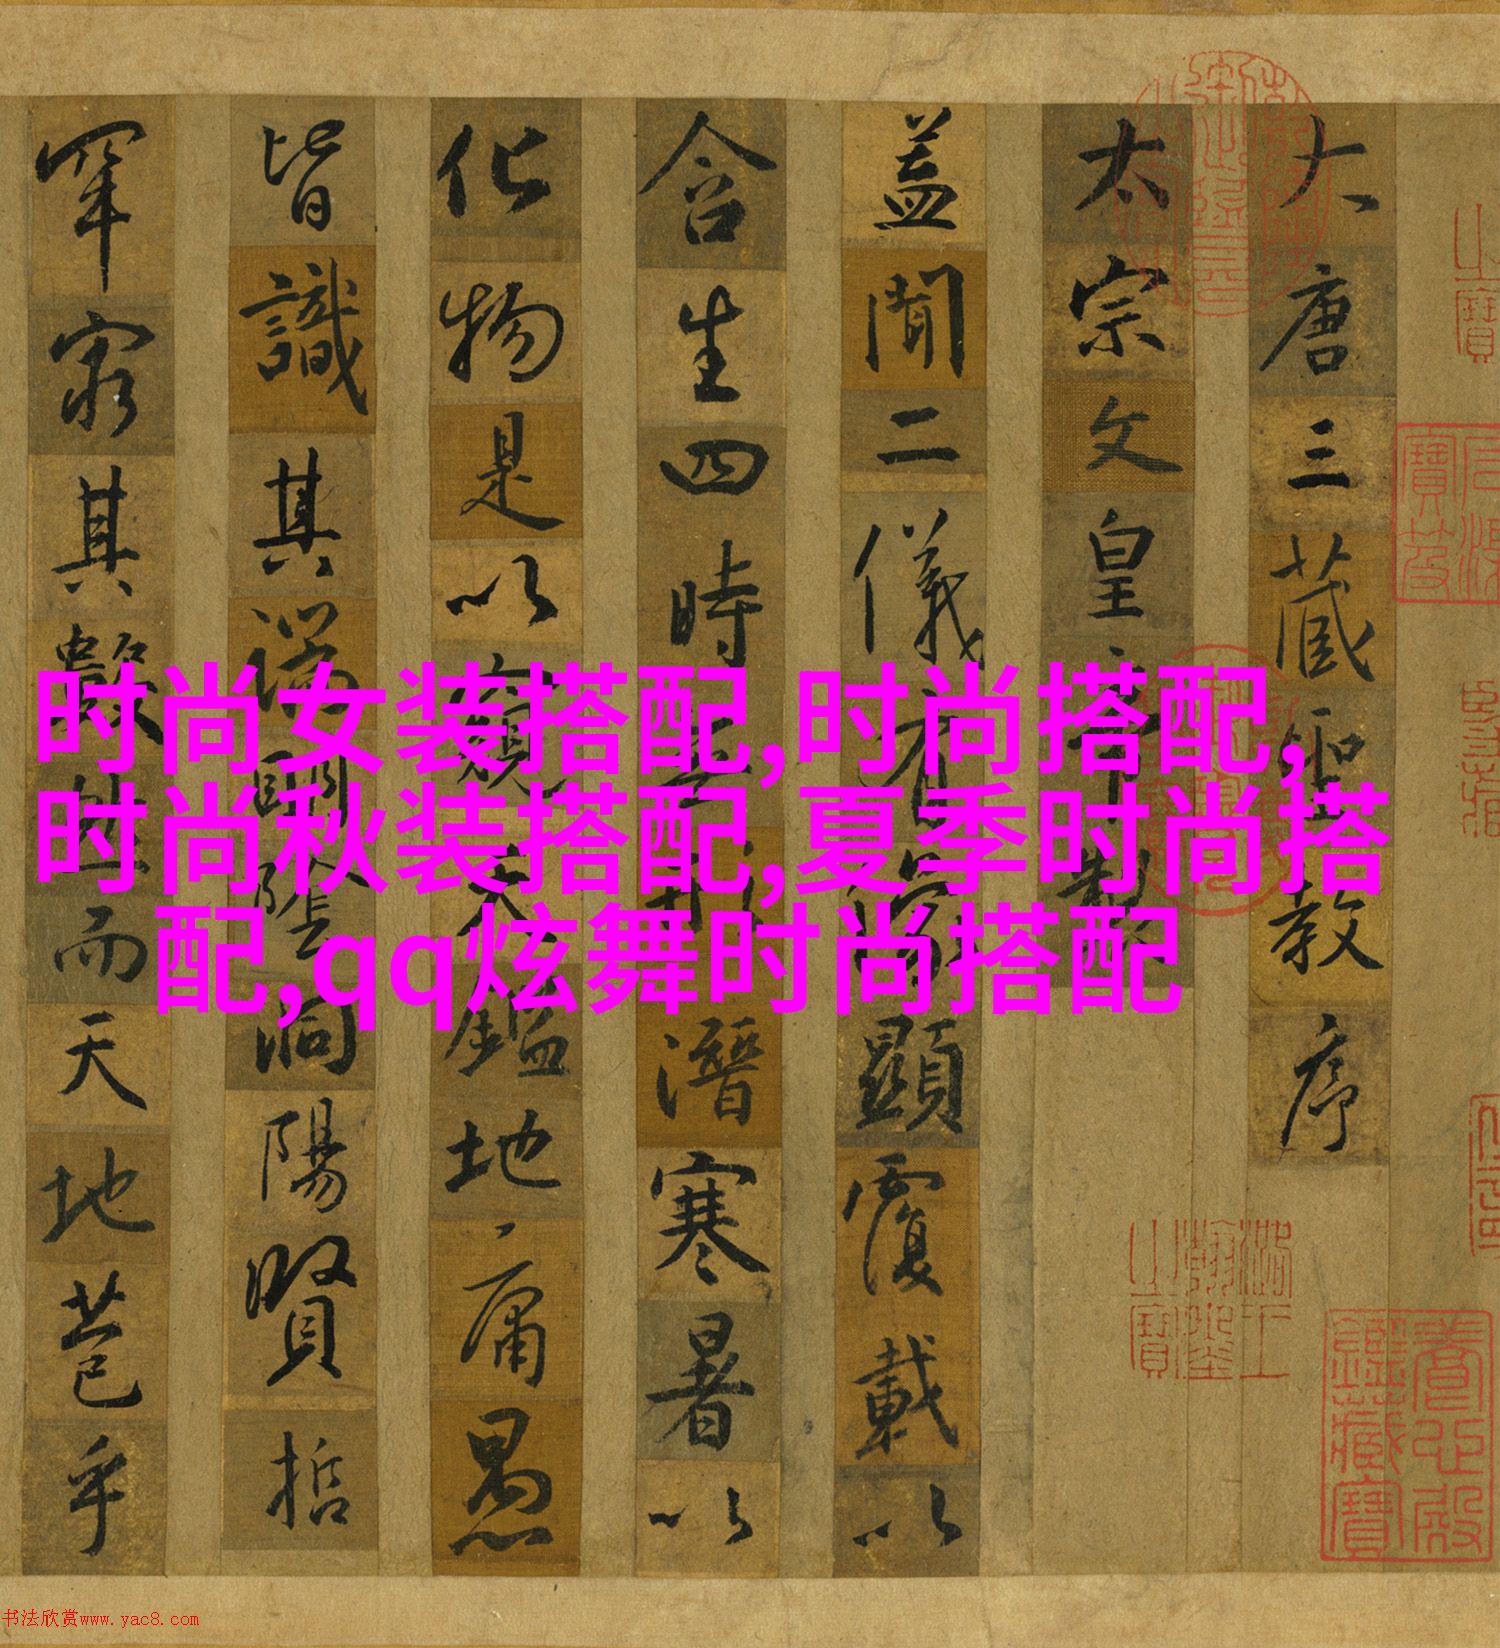 大唐三藏聖教序
太宗文皇帝製
蓋聞二儀有像顯覆載以
含生四時無形潛寒暑以
化物是以窺天鑑地庸愚
皆識其端明陰洞陽賢哲
罕窮其數然而天地苞乎
时尚女装搭配,时尚搭配,
时尚秋装搭配,夏季时尚搭
配,qq炫舞时尚搭配
養心殿鑑藏寶
书法欣赏www.yac8.com